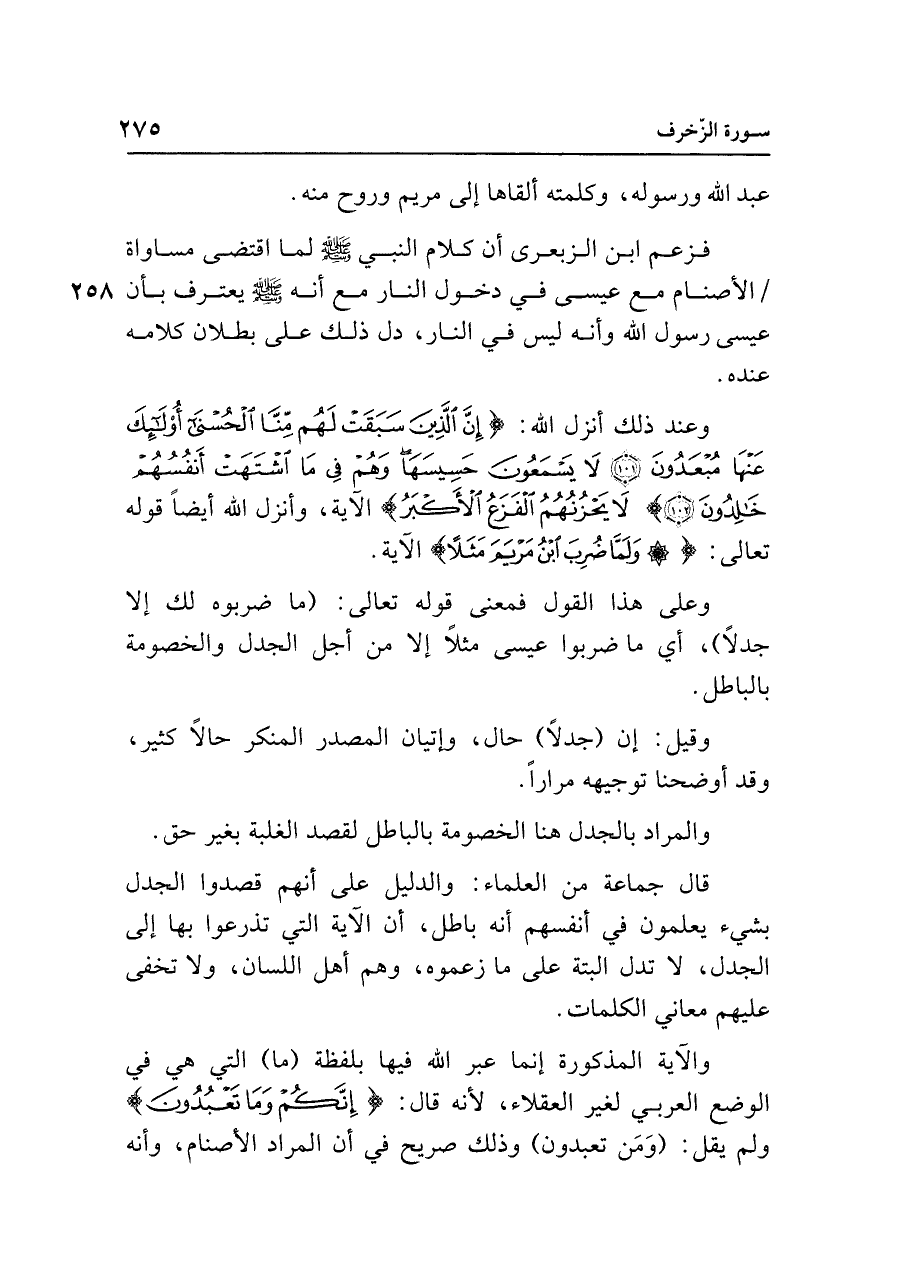 سورة الزّخرف ٢٧٥
عبد الله ورسوله، وكلمته ألقاها إلى مريم وروح منه.
فزعم ابن الزبعرى أن كلام النبي ﷺ لما اقتضى مساواة
/ الأصنام مع عيسى في دخول النار مع أنه ﷺ يعترف بأن ٢٥٨
عيسى رسول الله وأنه ليس في النار، دل ذلك على بطلان كلامه
عنده.
وعند ذلك أنزل الله: ﴿ إِنَّ ٱلَّذِينَ سَبَقَتْ لَهُم مِّنَّا ٱلْحُسْنَىٰٓ أُوْلَٰٓئِكَ
عَنْهَا مُبْعَدُونَ ﴿١٠١﴾ لَا يَسْمَعُونَ حَسِيسَهَا ۖ وَهُمْ فِى مَا ٱشْتَهَتْ أَنفُسُهُمْ
خَٰلِدُونَ ﴿١٠٢﴾﴾ لَا يَحْزُنُهُمُ ٱلْفَزَعُ ٱلْأَكْبَرُ﴾ الآية، وأنزل الله أيضاً قوله
تعالى: ﴿ ۞ وَلَمَّا ضُرِبَ ٱبْنُ مَرْيَمَ مَثَلًا﴾ الآية.
وعلى هذا القول فمعنى قوله تعالى: (ما ضربوه لك إلا
جدلاً)، أي ما ضربوا عيسى مثلاً إلا من أجل الجدل والخصومة
بالباطل.
وقيل: إن (جدلاً) حال، وإتيان المصدر المنكر حالاً كثير،
وقد أوضحنا توجيهه مراراً.
والمراد بالجدل هنا الخصومة بالباطل لقصد الغلبة بغير حق.
قال جماعة من العلماء: والدليل على أنهم قصدوا الجدل
بشيء يعلمون في أنفسهم أنه باطل، أن الآية التي تذرعوا بها إلى
الجدل، لا تدل البتة على ما زعموه، وهم أهل اللسان، ولا تخفى
عليهم معاني الكلمات.
والآية المذكورة إنما عبر الله فيها بلفظة (ما) التي هي في
الوضع العربي لغير العقلاء، لأنه قال: ﴿ إِنَّكُمْ وَمَا تَعْبُدُونَ ﴾
ولم يقل: (وَمَن تعبدون) وذلك صريح في أن المراد الأصنام، وأنه